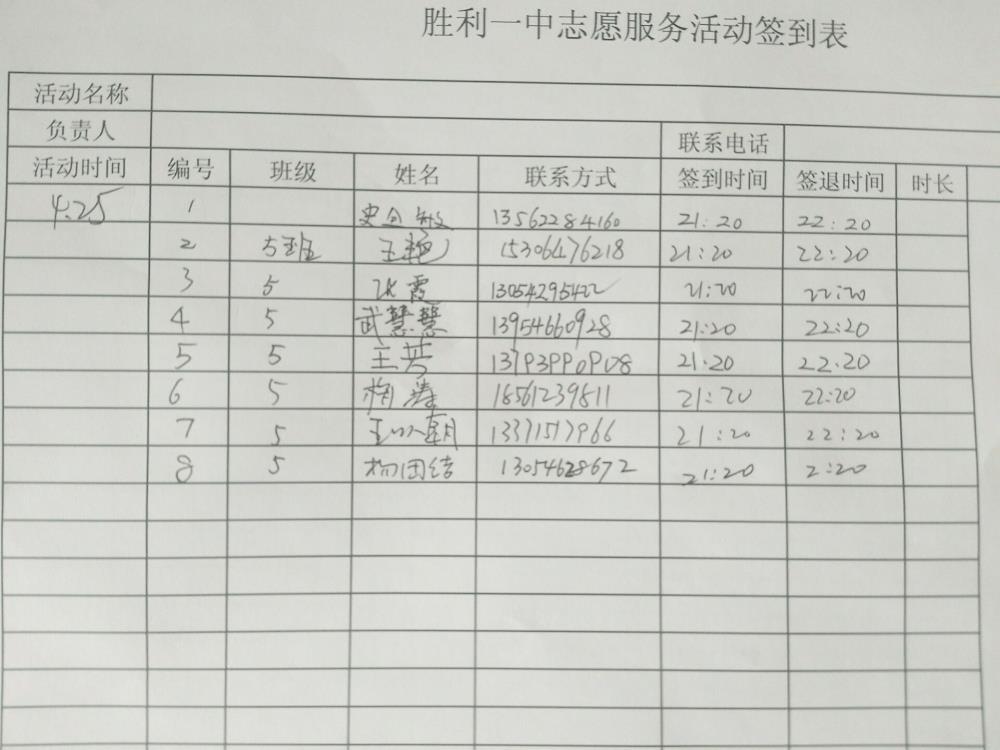 胜利一中志愿服务活动签到表
活动名称
负责人 联系电话
活动时间 编号 班级 姓名 联系方式 签到时间 签退时间 时长
4.25 1 史 敏 13562284160 21:20 22:20
2 5班 王艳 15306476218 21:20 22:20
3 5 张霞 13054295422 21:20 22:20
4 5 武慧慧 13954660928 21:20 22:20
5 5 王芳 13793990908 21.20 22.20
6 5 梅 18561239811 21:20 22:20
7 5 王 朝 13371517966 21:20 22:20
8 5 杨团结 13054628672 21:20 2:20